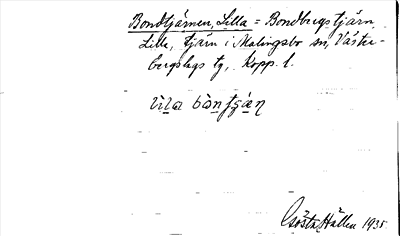 Bondtjärnen, Lilla = Bondbergstjärn,
Lilla, tjärn i Malingsbo sn, Väster-
bergslags tg, Kopp. l.
Gösta Hallen 1935